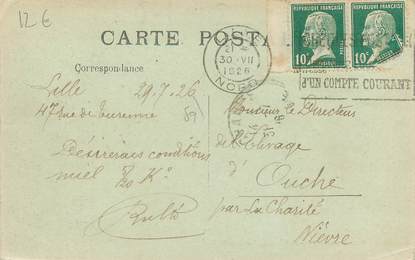 12 €
CARTE POSTALE
Correspondance
RÉPUBLIQUE FRANÇAISE
RÉPUBLIQUE FRANÇAISE
10c
10c
30 - VII
1926
NORD
D'UN COMPTE COURANT
Lille 29.7.26
47 rue de Turenne
59
Désirerais conditions
miel
Monsieur le Directeur
de l'Elevage
d'
Ouche
par La Charité
Nièvre